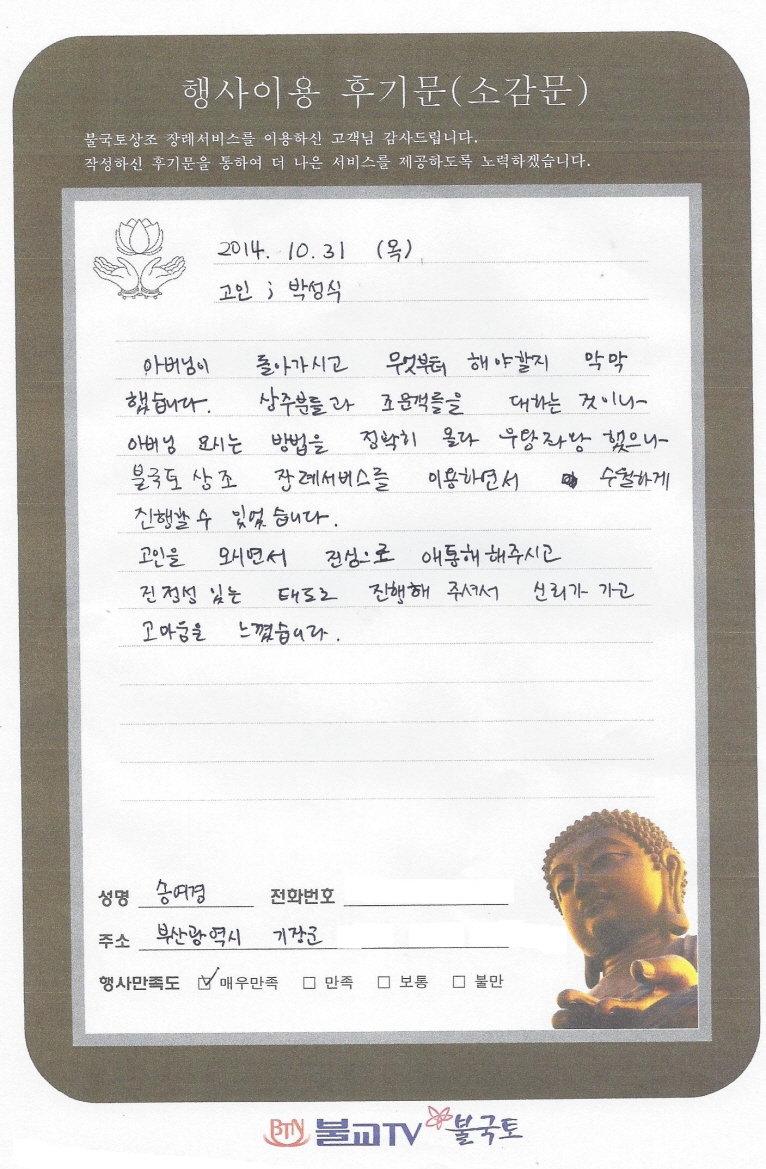 행사이용 후기문(소감문)
불국토상조 장례서비스를 이용하신 고객님 감사드립니다.
작성하신 후기문을 통하여 더 나은 서비스를 제공하도록 노력하겠습니다.
2014. 10. 31 (목)
고인 ; 박성식
아버님이 돌아가시고 무엇부터 해야할지 막막
했습니다. 상주분들과 조문객들을 대하는 것이나
아버님 모시는 방법을 정확히 몰라 우왕좌왕 했으나
불국토 상조 장례서비스를 이용하면서 수월하게
진행할 수 있었습니다.
고인을 모시면서 진심으로 애통해 해주시고
진정성 있는 태도로 진행해 주셔서 신뢰가 가고
고마움을 느꼈습니다.
성명 송여경 전화번호
주소 부산광역시 기장군
행사만족도 매우만족 만족 보통 불만
BTN 불교TV 불국토